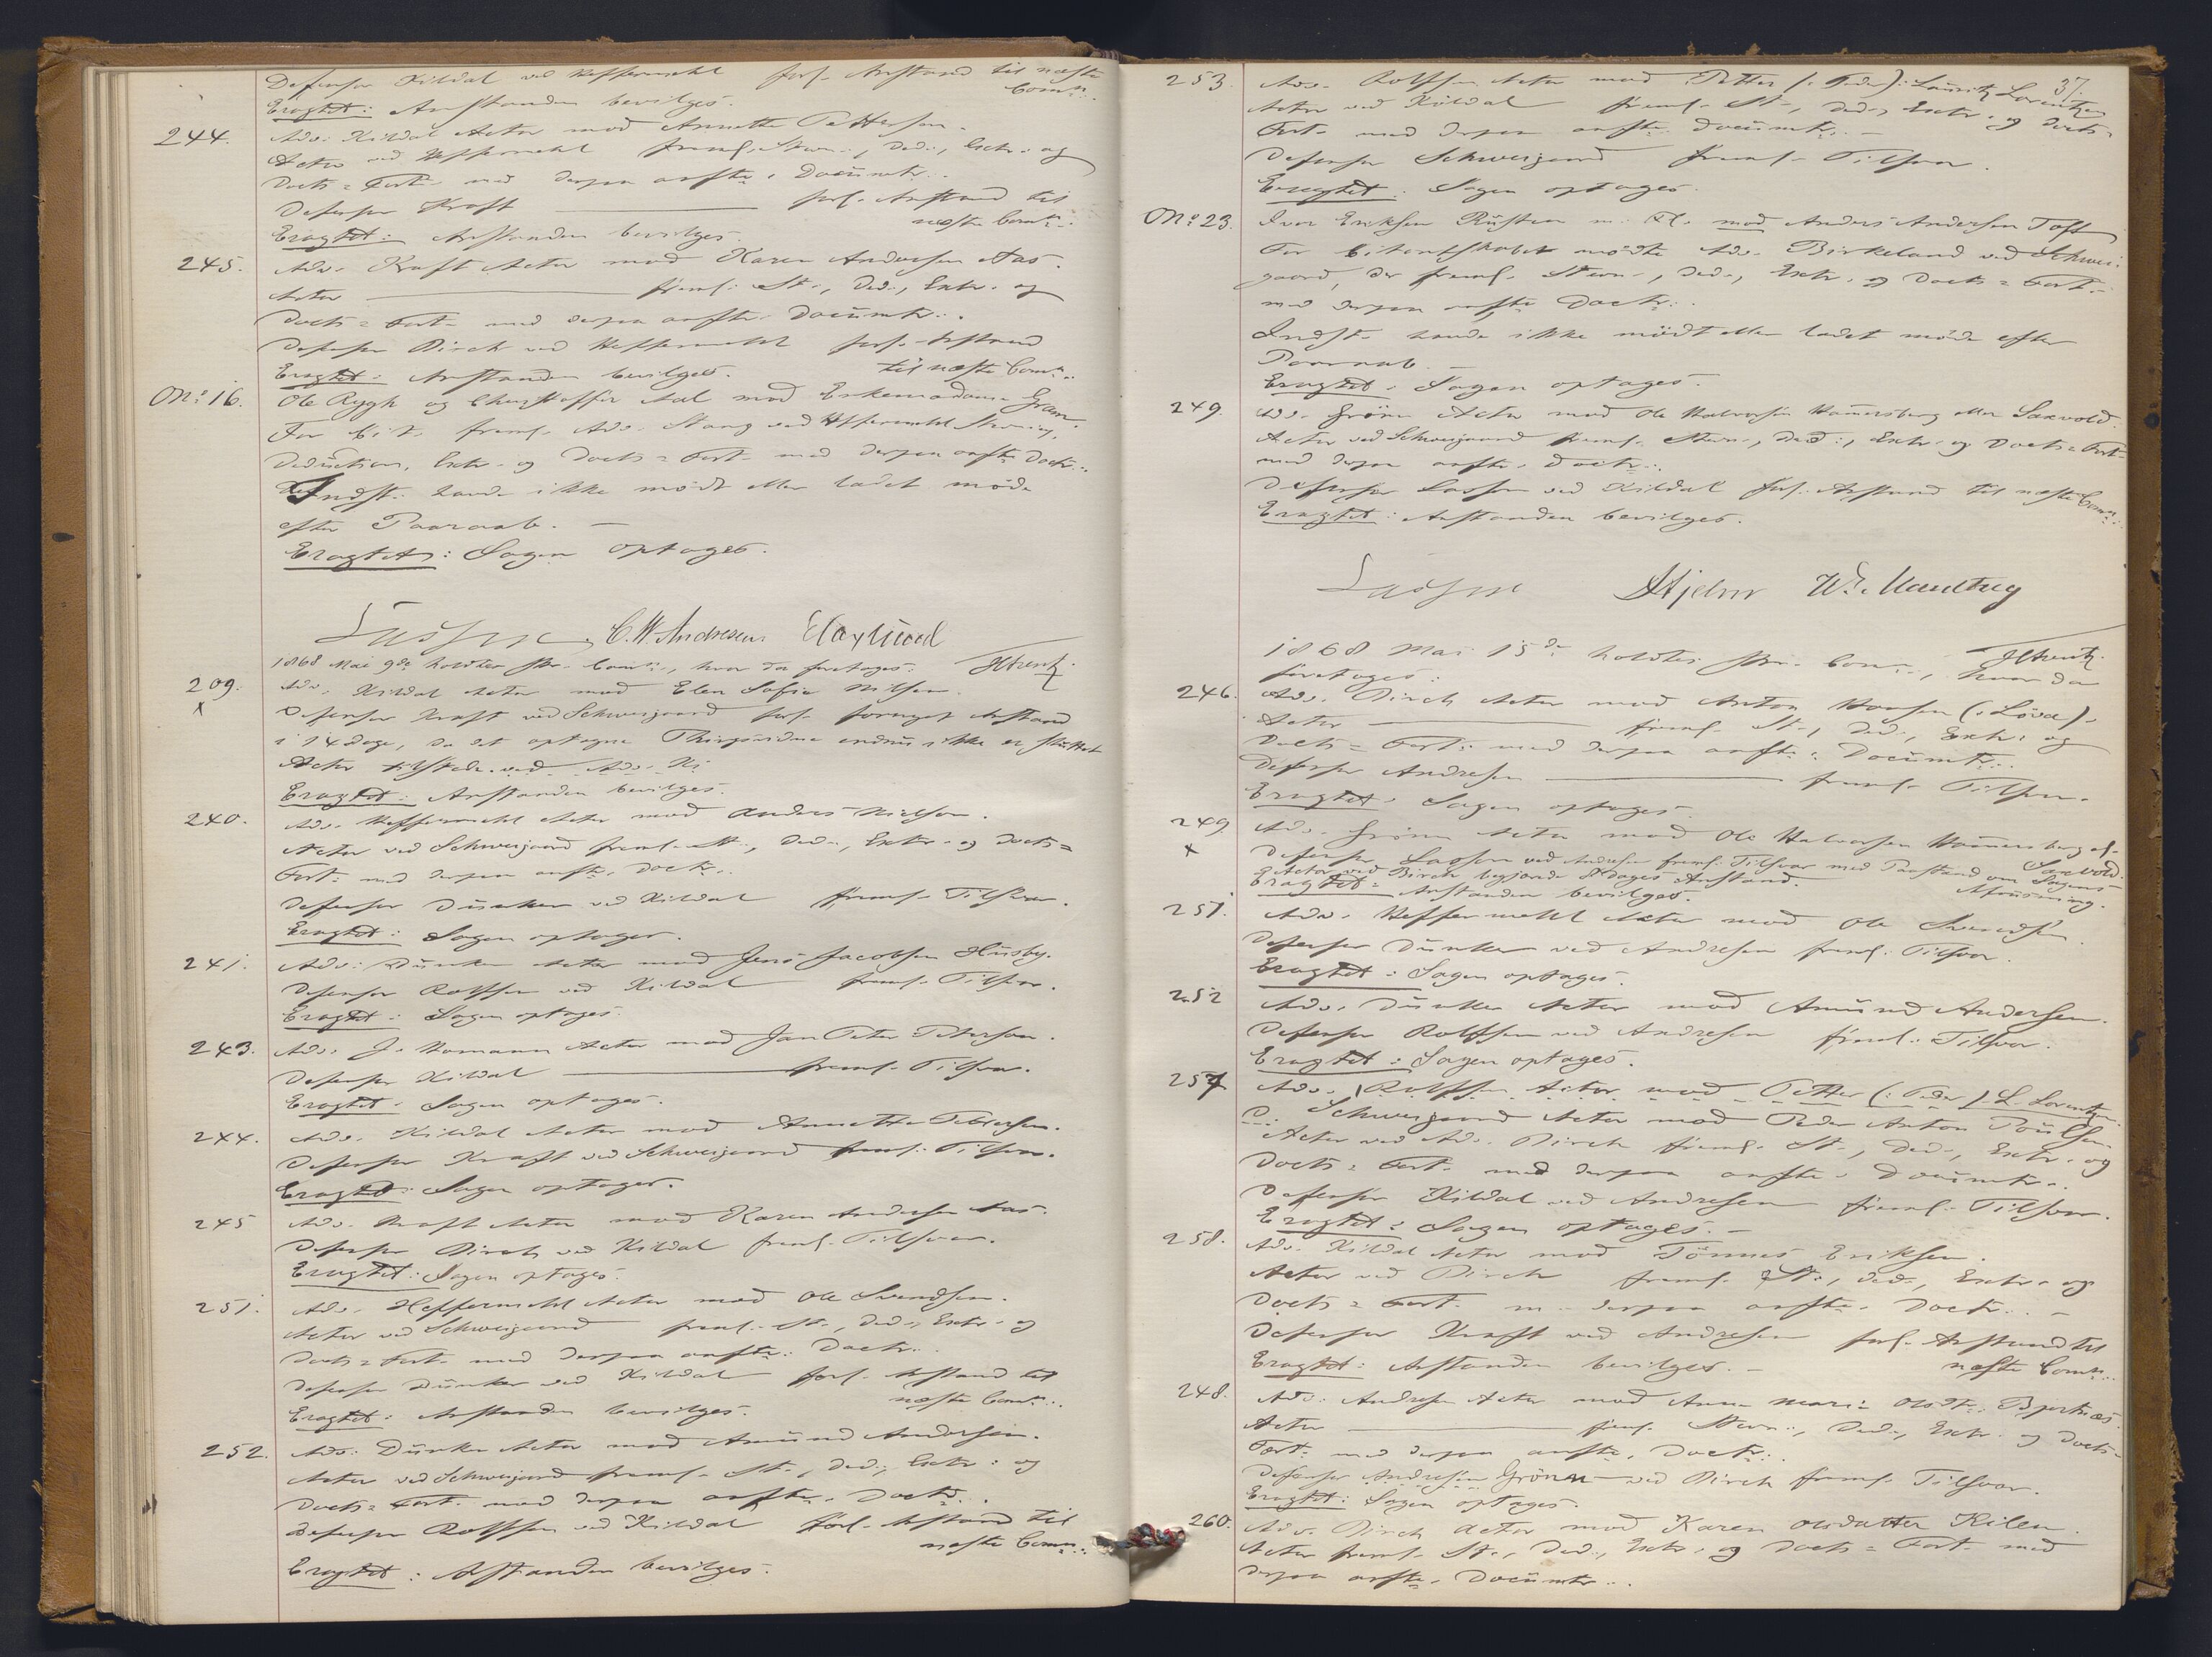 Defensor Kildal ved Heffermehl forl. Anstand til næste Comn:.
Eragtet: Anstanden bevilges.
244. Adv. Kildal Actor mod Annette Pettersen.
Actor ved Heffermehl freml. Stevn:, Ded:, Extr. og
Docts= Fort. med derpaa anfte. Documtr:.
Defensor Kraft forl. Anstand til
næste Comn:.
Eragtet: Anstanden bevilges.
245. Adv. Kraft Actor mod Karen Andersen Aas.
Actor freml. St:, Ded:, Extr. og
Docts= Fort. med derpaa anfte. Documtr:.
Defensor Birch ved Heffermehl forl. Anstand
til næste Comn:.
Eragtet: Anstanden bevilges.
No: 16. Ole Rygh og Christoffer Aal mod Enkemadame Gram.
For Cit. freml. Adv. Stang ved Heffermehl Stevning,
Deduction, Extr. og Docts= Fort. med derpaa anfte Doctr:.
Indst. havde ikke mödt eller ladet möde
efter Paaraab. —
Eragtet: Sagen optages.
Lasson C. W. Andresen
1868 Mai 9de holdtes Comn:, hvor da foretoges:
209. x Adv. Kildal Actor mod Elen Sofie Nilsen.
Defensor Kraft ved Schweigaard forl. fornyet Anstand
i 14 dage, da det optagne Thingsvidne endnu ikke er sluttet
Actor tilstede ved Adv. Ki
Eragtet: Anstanden bevilges.
240. Adv. Heffermehl Actor mod Anders Nielsen.
Actor ved Schweigaard freml. St:, Ded:, Extr. og Docts=
Fort: med derpaa anfte. Doctr:.
Defensor Dunker ved Kildal freml. Tilsvar.
Eragtet: Sagen optages.
241. Adv: Dunker Actor mod Jens Jacobsen Husby.
Defensor Rolfsen ved Kildal freml. Tilsvar.
Eragtet: Sagen optages.
243. Adv. J. Homann Actor mod Jan Peter Peterson.
Defensor Kildal freml. Tilsvar.
Eragtet: Sagen optages.
244. Adv. Kildal Actor mod Annette Pettersen.
Defensor Kraft ved Schweigaard freml. Tilsvar.
Eragtet: Sagen optages.
245 Adv. Kraft Actor mod Karen Andersen Aas.
Defensor Birch ved Kildal freml. Tilsvar.
Eragtet: Sagen optages.
251. Adv. Heffermehl Actor mod Ole Svendsen.
Actor ved Schweigaard freml. St:, Ded:, Extr. og
Docts= Fort. med derpaa anfte: Doctr:.
Defensor Dunker ved Kildal forl. Anstand til
næste Comn:.
Eragtet: Anstanden bevilges.
252. Adv: Dunker Actor mod Amund Andersen.
Actor ved Schweigaard freml. St:, Ded:, Extr: og
Docts= Fort. med derpaa anfte. Doctr:.
Defensor Rolfsen ved Kildal forl. Anstand til
næste Comn:.
Eragtet: Anstanden bevilges.
37.
253. Adv. Rolfsen Actor mod Petter (: Peder): Lauritz Lorentzen
Actor ved Kildal freml. St:, Ded:, Extr. og Docts=
Fort. med derpaa anfte. Documtr:. —
Defensor Schweigaard freml. Tilsvar.
Eragtet: Sagen optages.
No: 23. Iver Eriksen Rusten m. Fl. mod Anders Andersen Toft
For Citantskabet mödte Adv. Birkeland ved Schwei-
gaard, der freml. Stevn:, Ded:, Extr. og Docts= Fort.
med derpaa anfte Doctr:.
Indst. havde ikke mödt eller ladet möde efter
Paaraab. —
Eragtet: Sagen optages.
249. Adv. Grönn Actor mod Ole Halvorsen Hammersberg eller Saxvold.
Actor ved Schweigaard freml. Stevn:, Ded:, Extr. og Docts= Fort.
med derpaa anfte. Doctr:.
Defensor Lasson ved Kildal forl. Anstand til næste Comn:.
Eragtet: Anstanden bevilges.
Lasson Hjelm
1868 Mai 15de holdtes Comn:, hvor da
foretoges:
246. Adv. Birch Actor mod Anton Hansen (: Löva).
Actor freml. St:, Ded:, Extr: og
Docts= Fort: med derpaa anfte: Documtr:.
Defensor Andresen freml. Tilsvar.
Eragtet: Sagen optages.
249 x Adv. Grönn Actor mod Ole Halvorsen Hammersberg el.
Saxvold.
Defensor Lasson ved Andresen freml. Tilsvar med Paastand om Sagens
Afviisning.
Actor ved Birch begjærede 8 Dages Anstand.
Eragtet: Anstanden bevilges.
251. Adv. Heffermehl Actor mod Ole Svendsen.
Defensor Dunker ved Andresen freml. Tilsvar.
Eragtet: Sagen optages.
252 Adv. Dunker Actor mod Amund Andersen.
Defensor Rolfsen ved Andresen freml: Tilsvar.
Eragtet: Sagen optages.
257 Adv. Rolfsen Actor mod Petter (: Peder) L. Lorentzen
Schweigaard Actor mod Peder Anton Poulsen.
Actor ved Adv. Birch freml. St:, Ded:, Extr. og
Docts= Fort. med derpaa anfte. Documtr:.
Defensor Kildal ved Andresen freml. Tilsvar.
Eragtet: Sagen optages. —
258. Adv. Kildal Actor mod Tönnes Eriksen.
Actor ved Birch freml. St:, Ded:, Extr. og
Docts= Fort. m. derpaa anfte. Doctr:. —
Defensor Kraft ved Andresen forl. Anstand til
næste Comn:.
Eragtet: Anstanden bevilges. —
248. Adv: Andresen Actor mod Anne Marie Olsdt.
Actor freml. Stevn:, Ded:, Extr. og Docts=
Fort. med derpaa anfte. Doctr:.
Defensor Andresen Grönn ved Birch freml. Tilsvar.
Eragtet: Sagen optages.
260. Adv. Birch Actor mod Karen Olsdatter Kilen.
Actor freml. St:, Ded:, Extr. og Docts= Fort. med
derpaa anfte. Documtr:.